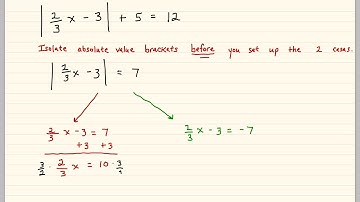 | 2/3 x - 3 | + 5 = 12
Isolate absolute value brackets before you set up the 2 cases.
| 2/3 x - 3 | = 7
2/3 x - 3 = 7
+3 +3
3/2 · 2/3 x = 10 · 3/2
2/3 x - 3 = -7